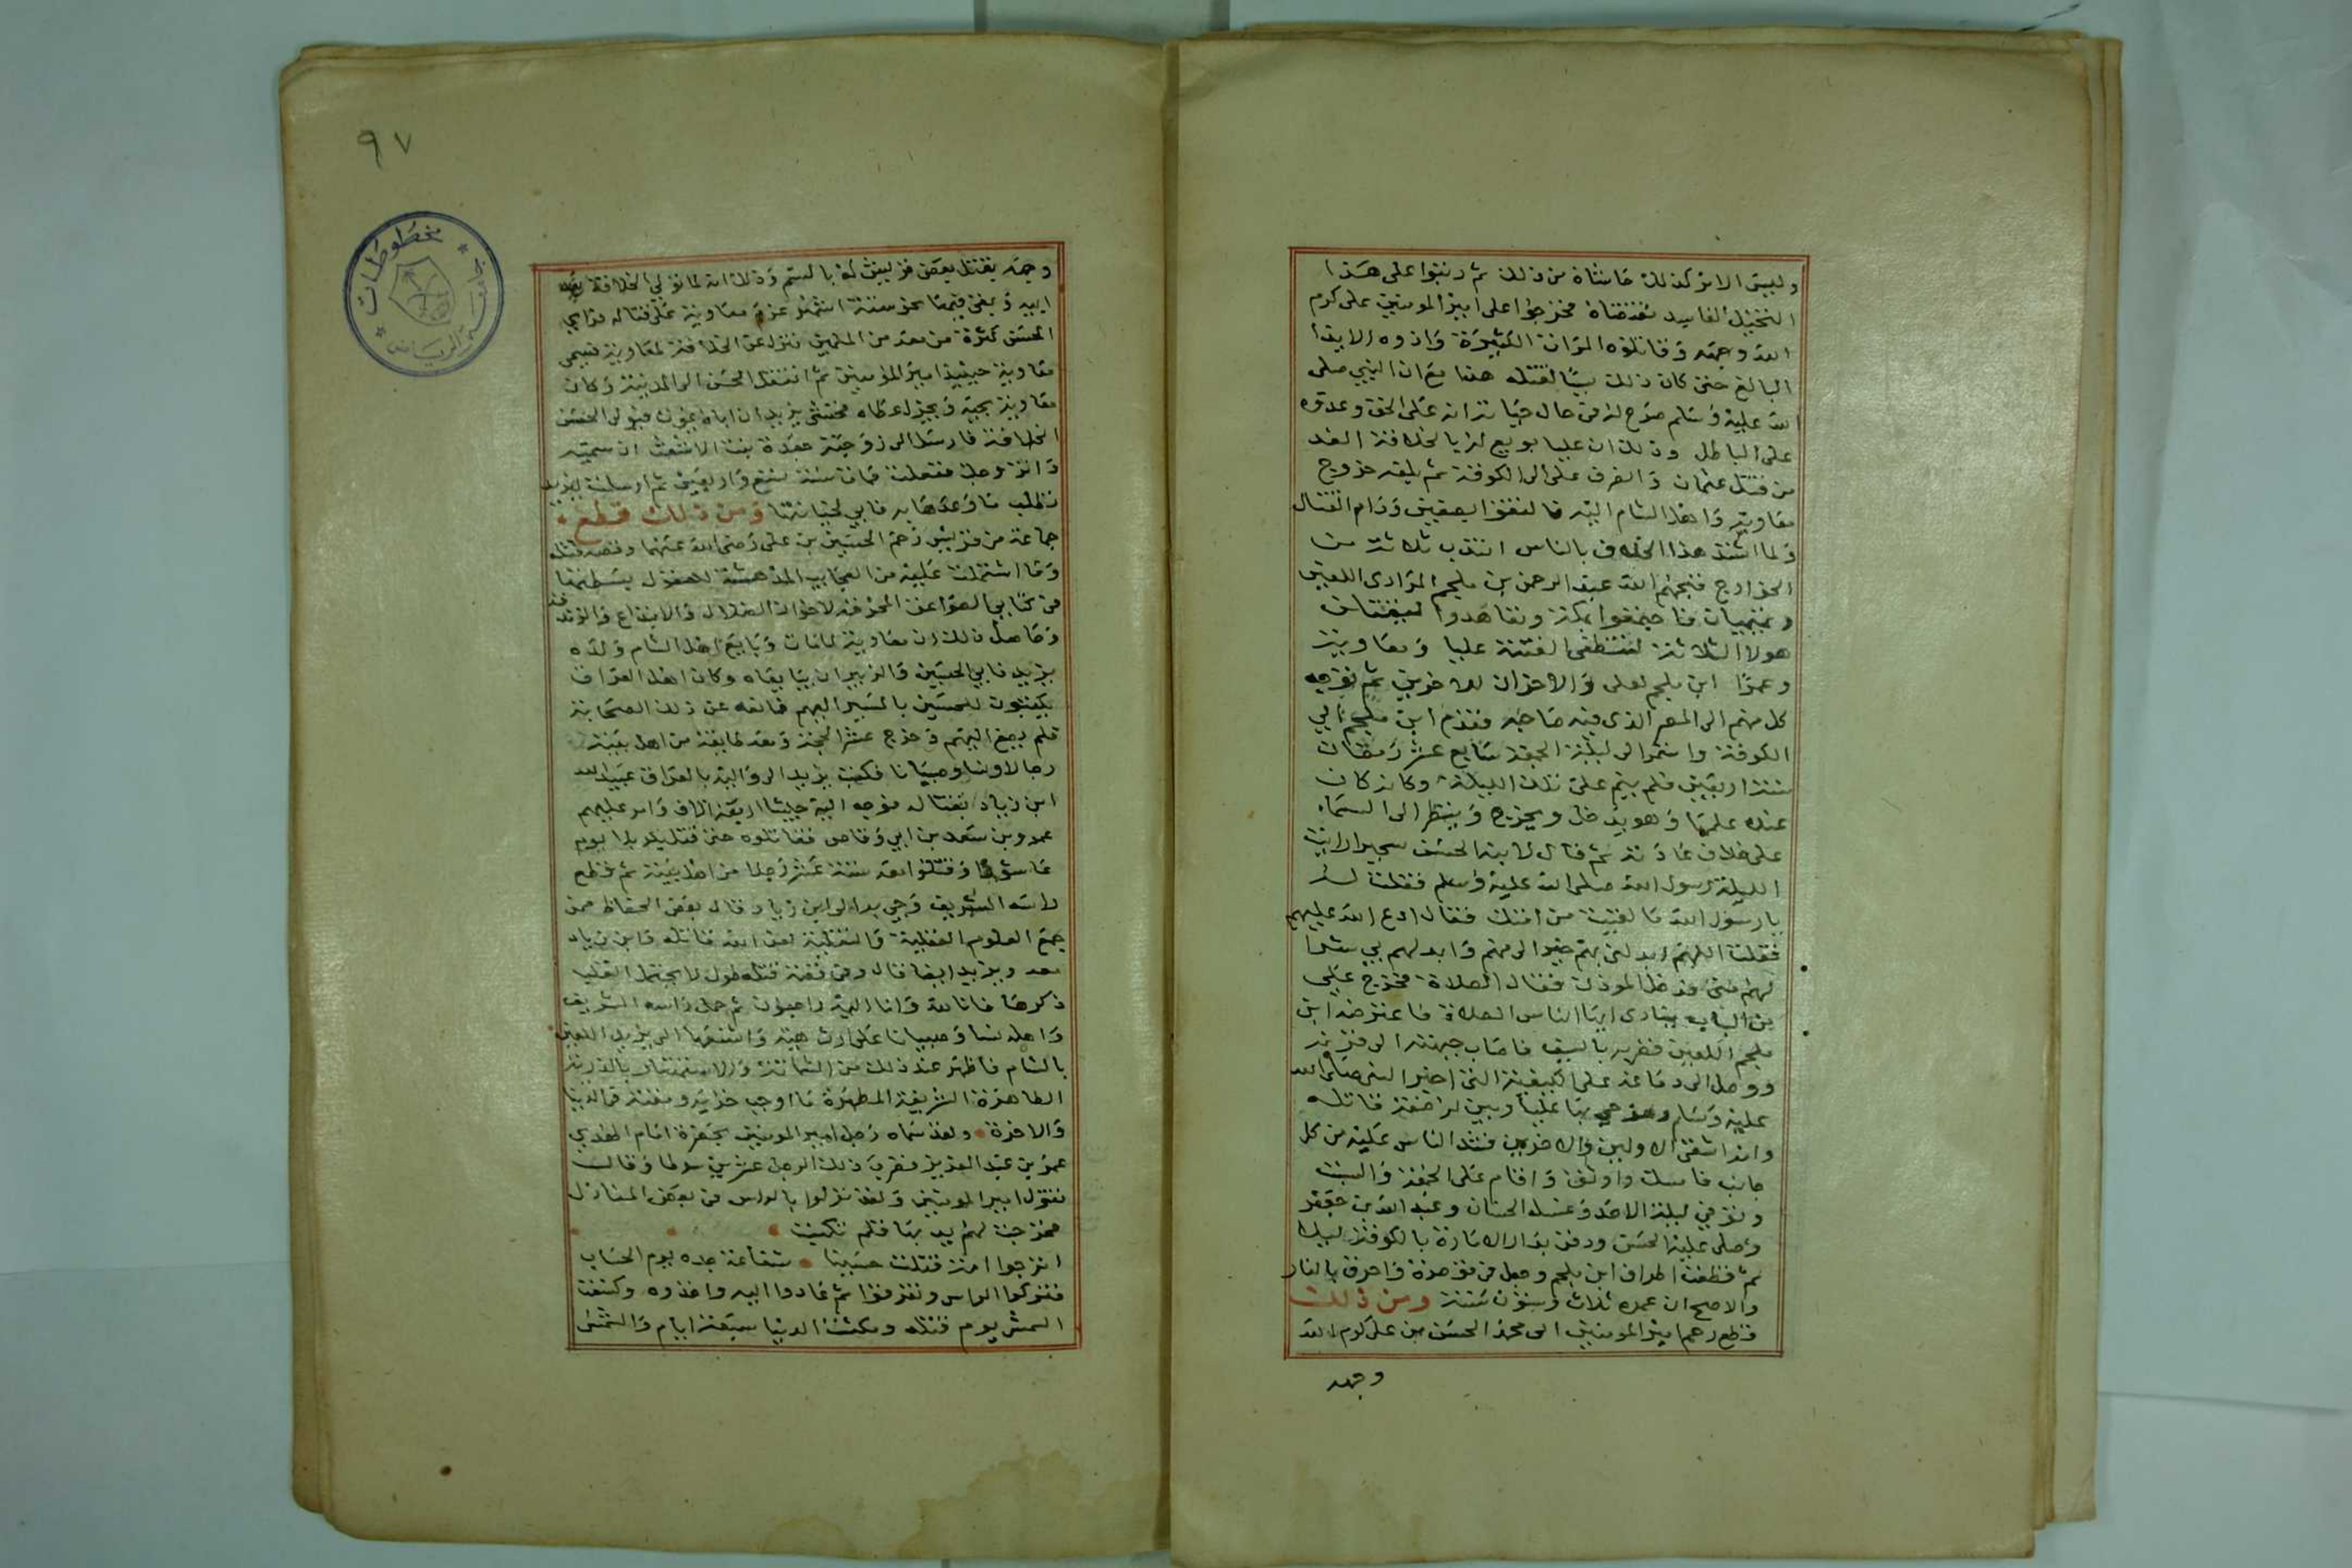 وليس الامر كذلك حاشاه من ذلك ثم رتبوا على هذا
التخيل الفاسد نقضناه فخرجوا على امير المومنين على كرم
الله وجهه وقاتلوه المرات الكثيرة واذوه الايذا
البالغ حتى كان ذلك سببا لقتله هذا مع ان النبي صلى
الله عليه وسلم صرح له في حال حياته انه على الحق وعدوه
على الباطل وذلك ان عليا بويع له بالخلافة الغد
من قتل عثمان وانصرف على الى الكوفة ثم بلغه خروج
معاوية واهل الشام اليه فالتقوا بصفين ودام القتال
ولما اشتد هذا الخلاف بالناس انتدب ثلاثة من
الخوارج قبحهم الله عبد الرحمن بن ملجم المرادى اللعين
وتميميان فاجتمعوا بمكة وتعاهدوا ليقتلن
هولا الثلاثة لتنطفى الفتنة عليا ومعاوية
وعمرا ابن ملجم لعلى والاخران للاخرين ثم توجه
كل منهم الى المصر الذى فيه صاحبه فقدم ابن ملجم الي
الكوفة واستمر الى ليلة الجمعة سابع عشر رمضان
سنة اربعين فلم ينم على تلك الليلة وكانه كان
عنده علمها وهو يدخل ويخرج وينظر الى السماء
على خلاف عادته ثم قال لابنه الحسن سحيرا رايت
الليلة رسول الله صلى الله عليه وسلم فقلت له
يا رسول الله ما لقيت من امتك فقال ادع الله عليهم
فقلت اللهم ابدلني بهم خيرا لى منهم وابدلهم بي شرا
لهم منى فدخل الموذن فقال الصلاة فخرج علي
من الباب ينادى ايها الناس الصلاة فاعترضه ابن
ملجم اللعين فضربه بالسيف فاصاب جبهته الى قرنه
ووصل الى دماغه على الكيفية التى اخبر النبي صلى الله
عليه وسلم بها عليا وبين له صفة قاتله
وانه اشقى الاولين والاخرين فشد الناس عليه من كل
جانب فامسك واوثق واقام على الجمعة والسبت
وتوفي ليلة الاحد وغسله الحسنان وعبد الله بن جعفر
وصلى عليه الحسن ودفن بدار الامارة بالكوفة ليلا
ثم قطعت اطراف ابن ملجم وجعل في قوصرة واحرق بالنار
والاصح ان عمره ثلاث وستون سنة ومن ذلك
قطع رحم امير المومنين ابى محمد الحسن بن على كرم الله
وجهه
٩٧
مخطوطات
وجهه بقتل بعض قريش له بالسم وذلك انه لما تولى الخلافة بعد
ابيه وبقى فيها نحو ستة اشهر عزم معاوية على قتاله فراي
الحسن كثرة من معه من المسلمين فنزل عن الخلافة لمعاوية فسمى
معاوية حينيذ امير المؤمنين ثم انتقل الحسن الى المدينة وكان
معاوية يحبه ويجزل عطاه فخشى يزيد ان اباه يموت فيولى الحسن
الخلافة فارسل الى زوجته جعدة بنت الاشعث ان سميه
وانزوجك ففعلت فمات سنة تسع واربعين ثم ارسلت ليزيد
تطلب ما وعدها به فابي لخيانتها ومن ذلك قطع
جماعة من قريش رحم الحسين بن على رضى الله عنهما وقصة قتله
وما اشتملت عليه من العجايب المدهشة للعقول بسطتها
في كتابي الصواعق المحرقة لاخوان الضلال والابتداع والزندقة
وحاصل ذلك ان معاوية لما مات وبايع اهل الشام ولده
يزيد فابي الحسين والزبير ان يبايعاه وكان اهل العراق
يكتبون للحسين بالمسير اليهم فمانعه عن ذلك الصحابة
فلم يصغ اليهم وخرج عشر الحجة ومعه طايفة من اهل بيته
رجالا ونساو صبيانا فكتب يزيد الى واليه بالعراق عبيد الله
ابن زياد بقتاله فوجه اليه جيشا اربعة الاف وامر عليهم
عمرو بن سعد بن ابي وقاص فقاتلوه حتى قتل بكربلا يوم
عاشورا وقتلوا معه ستة عشر رجلا من اهل بيته ثم قطع
راسه الشريف وجي به الى ابن زياد قال بعض الحفاظ ممن
جمع العلوم العقلية والنقلية لعن الله قاتله وابن زياد
معه ويزيد ايضا قال وفي قصة قتله طول لا يحتمل القلب
ذكرها فانا لله وانا اليه راجعون ثم حمل راسه الشريف
واهله نسا وصبيانا على ارث هية واشنعها الى يزيد اللعين
بالشام فاظهر عند ذلك من الشماتة والاستهتار بالذرية
الطاهرة الشريفة المطهرة ما اوجب خزايه ومقته في الدنيا
والاخرة ولقد سماه رجل امير المومنين بحضرة امام الهدي
عمر بن عبد العزيز فضرب ذلك الرجل عشرين سوطا وقال
تقول امير المومنين ولقد نزلوا بالراس في بعض المنازل
فخرجت لهم يد بها قلم تكتب
اترجوا امة قتلت حسينا شفاعة جده يوم الحساب
فتركوا الراس وتفرقوا ثم عادوا اليه واخذوه وكسفت
الشمس يوم قتله ومكثت الدنيا سبعة ايام والشمس